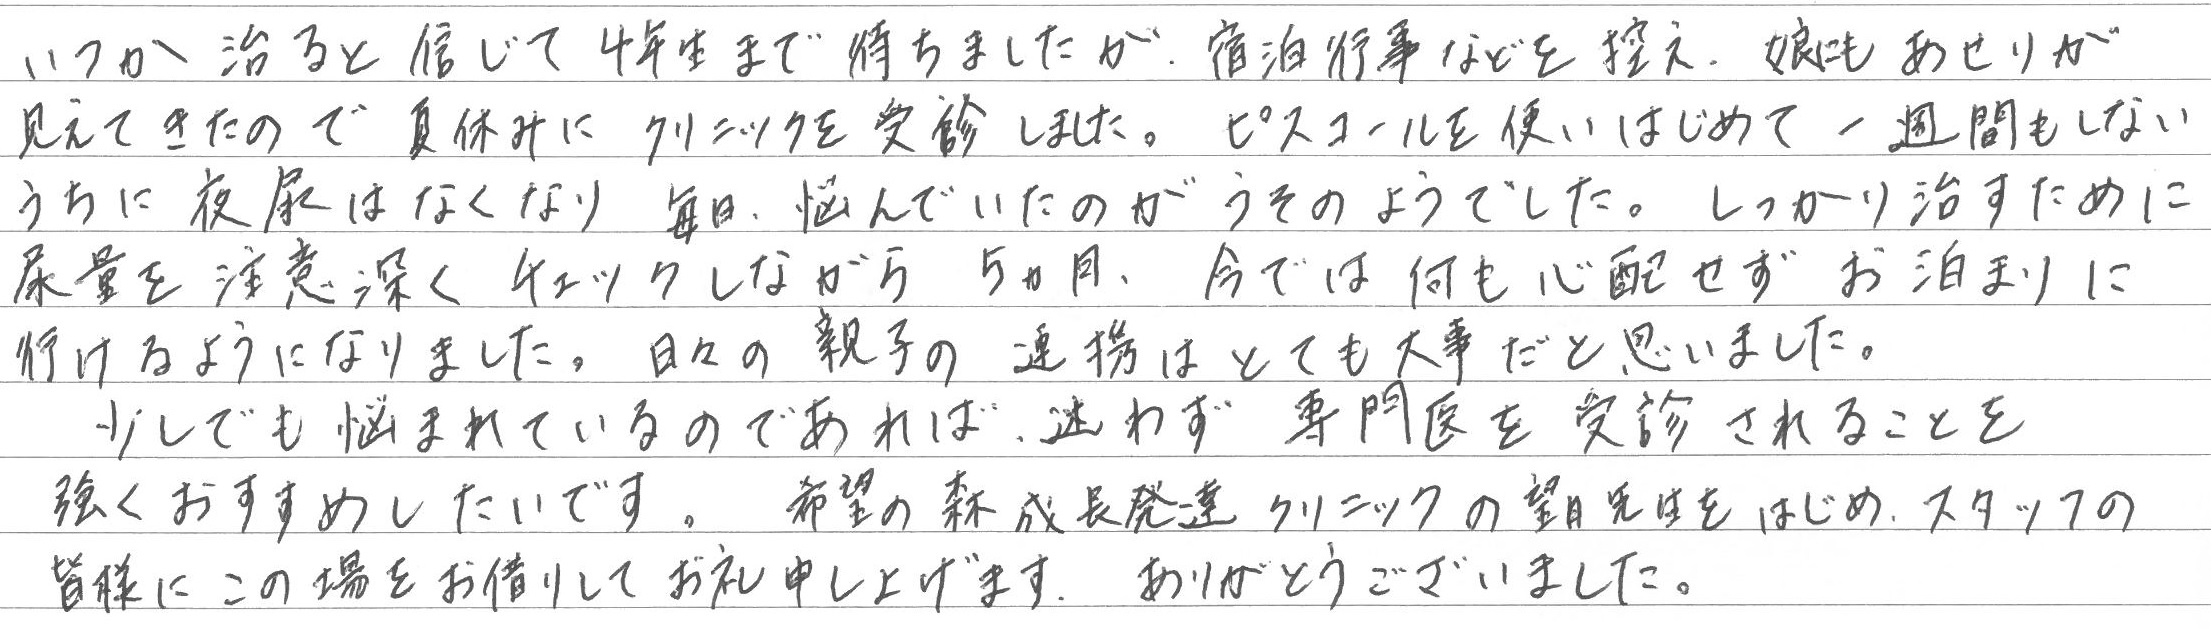 いつか治ると信じて4年生まで待ちましたが、宿泊行事などを控え、娘にもあせりが
見えてきたので夏休みにクリニックを受診しました。ピスコールを使いはじめて一週間もしない
うちに夜尿はなくなり毎日、悩んでいたのがうそのようでした。しっかり治すために
尿量を注意深くチェックしながら5ヵ月、今では何も心配せずお泊まりに
行けるようになりました。日々の親子の連携はとても大事だと思いました。
少しでも悩まれているのであれば、迷わず専門医を受診されることを
強くおすすめしたいです。希望の森成長発達クリニックの望月先生をはじめ、スタッフの
皆様にこの場をお借りしてお礼申し上げます。ありがとうございました。